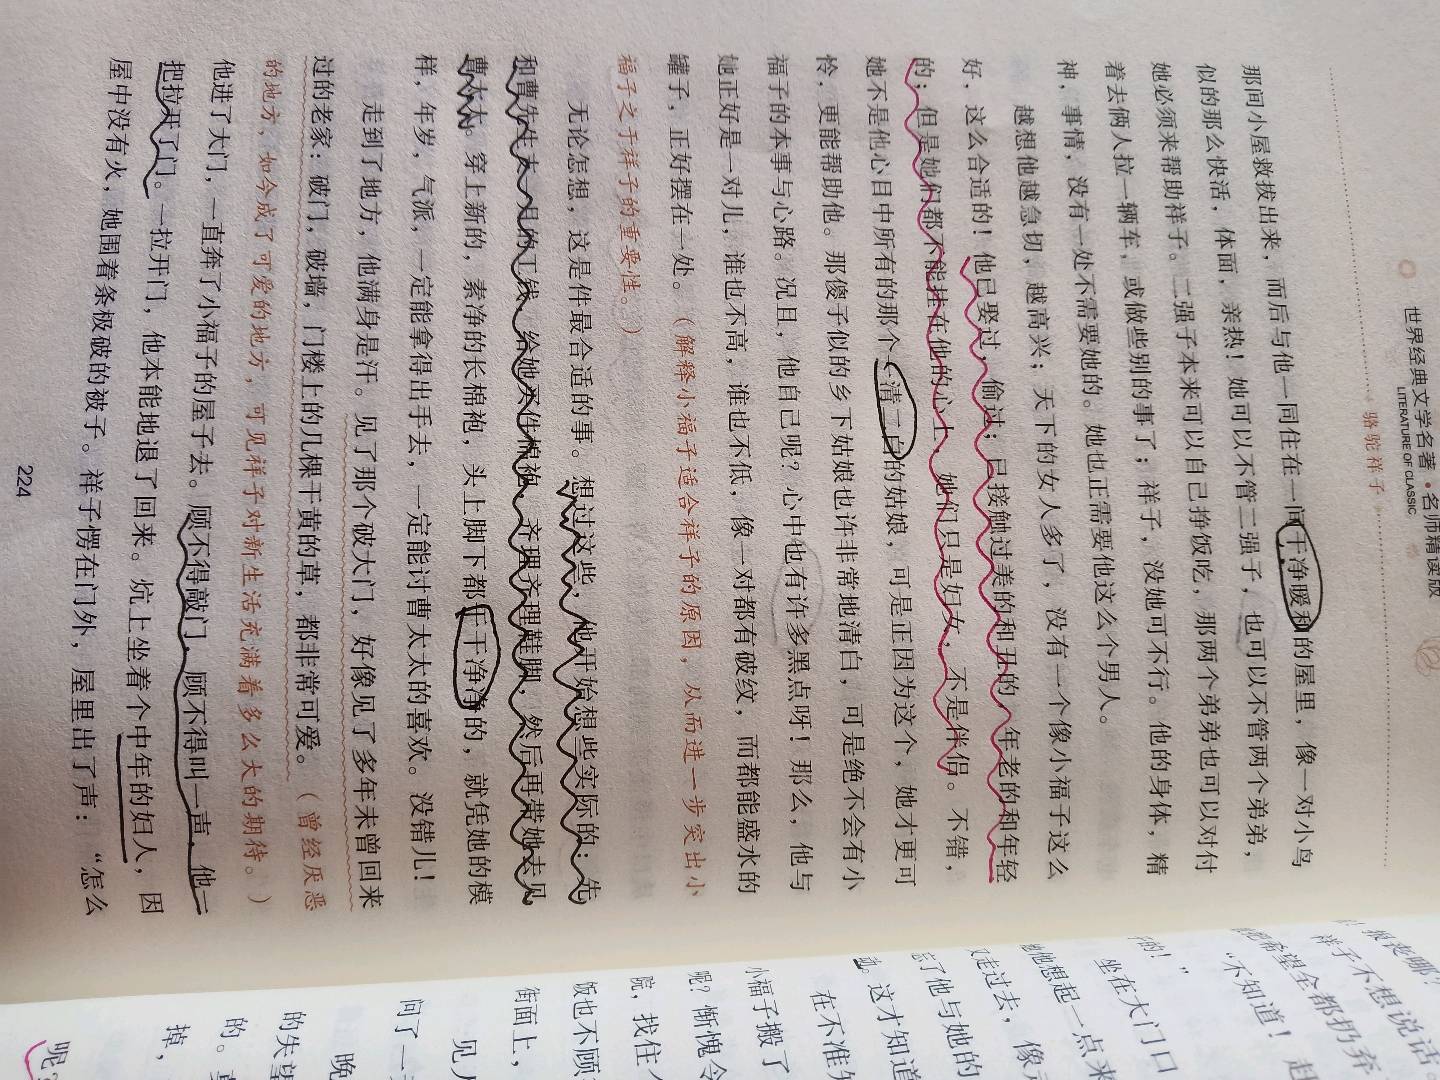 世界经典文学名著·名师精读版
LITERATURE OF CLASSIC
骆驼祥子
那间小屋救拔出来，而后与他一同住在一间干净暖和的屋里，像一对小鸟
似的那么快活，体面，亲热！她可以不管二强子，也可以不管两个弟弟，
她必须来帮助祥子。二强子本来可以自己挣饭吃，那两个弟弟也可以对付
着去俩人拉一辆车，或做些别的事了；祥子，没她可不行。他的身体，精
神，事情，没有一处不需要她的。她也正需要他这么个男人。
越想他越急切，越高兴；天下的女人多了，没有一个像小福子这么
好，这么合适的！他已娶过，偷过；已接触过美的和丑的，年老的和年轻
的；但是她们都不能挂在他的心上，她们只是妇女，不是伴侣。不错，
她不是他心目中所有的那个一清二白的姑娘，可是正因为这个，她才更可
怜，更能帮助他。那傻子似的乡下姑娘也许非常地清白，可是绝不会有小
福子的本事与心路。况且，他自己呢？心中也有许多黑点呀！那么，他与
她正好是一对儿，谁也不高，谁也不低，像一对都有破纹，而都能盛水的
罐子，正好摆在一处。（解释小福子适合祥子的原因，从而进一步突出小
福子之于祥子的重要性。）
无论怎想，这是件最合适的事。想过这些，他开始想些实际的：先
和曹先生支一月的工钱，给她买件棉袍，齐理齐理鞋脚，然后再带她去见
曹太太。穿上新的，素净的长棉袍，头上脚下都干干净净的，就凭她的模
样，年岁，气派，一定能拿得出手去，一定能讨曹太太的喜欢。没错儿！
走到了地方，他满身是汗。见了那个破大门，好像见了多年未曾回来
过的老家：破门，破墙，门楼上的几棵干黄的草，都非常可爱。（曾经厌恶
的地方，如今成了可爱的地方，可见祥子对新生活充满着多么大的期待。）
他进了大门，一直奔了小福子的屋子去。顾不得敲门，顾不得叫一声，他一
把拉开了门。一拉开门，他本能地退了回来。炕上坐着个中年的妇人，因
屋中没有火，她围着条极破的被子。祥子愣在门外，屋里出了声：“怎么
224
报丧哪？
祥子不想说话。
希望全都扔弃
“不知道！
的！”
坐在大门口
他想起一点来
走过去，像
忘了他与她的
这才知道
在不准
小福子搬了
呢？惭愧令
院，找住
饭也不顾
街面上，
见
问了一
晚
的失望
的。
掉，
呢？